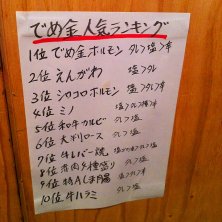 でめ金人気ランキング
1位 でめ金ホルモン タレ>塩>辛
2位 えんがわ 塩>タレ
3位 シロコロホルモン 塩>タレ>辛
4位 ミノ 塩>タレ>辛
5位 和牛カルビ タレ>塩
6位 大判ロース タレ>塩
7位 牛レバー焼 タレ>塩
8位 盛り タレ>塩
9位 特Aしま腸 タレ>塩>辛
10位 牛ハラミ タレ>塩